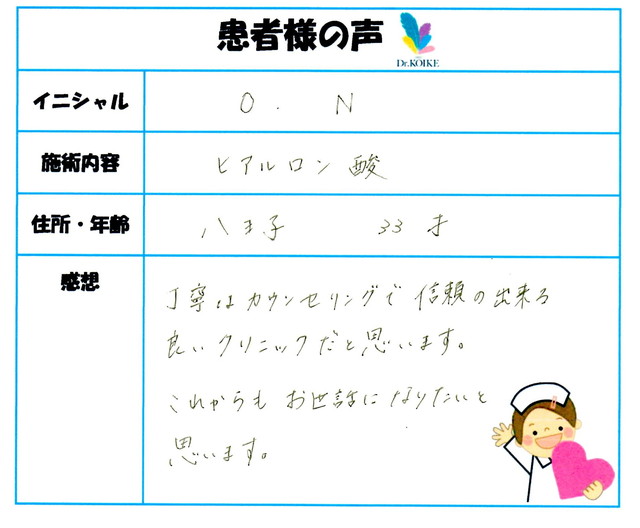 患者様の声
Dr.KOIKE
イニシャル O. N
施術内容 ヒアルロン酸
住所・年齢 八王子 33才
感想
丁寧はカウンセリングで信頼の出来る
良いクリニックだと思います。
これからもお世話になりたいと
思います。